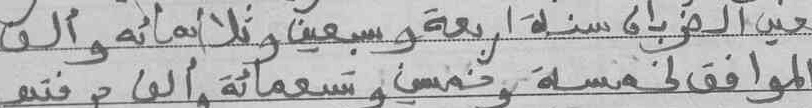 عين الخربان سنة اربعة وسبعين وثلاثمائه وألف
الموافق لخمسة وخمسين وتسعمائة وألف م فتم